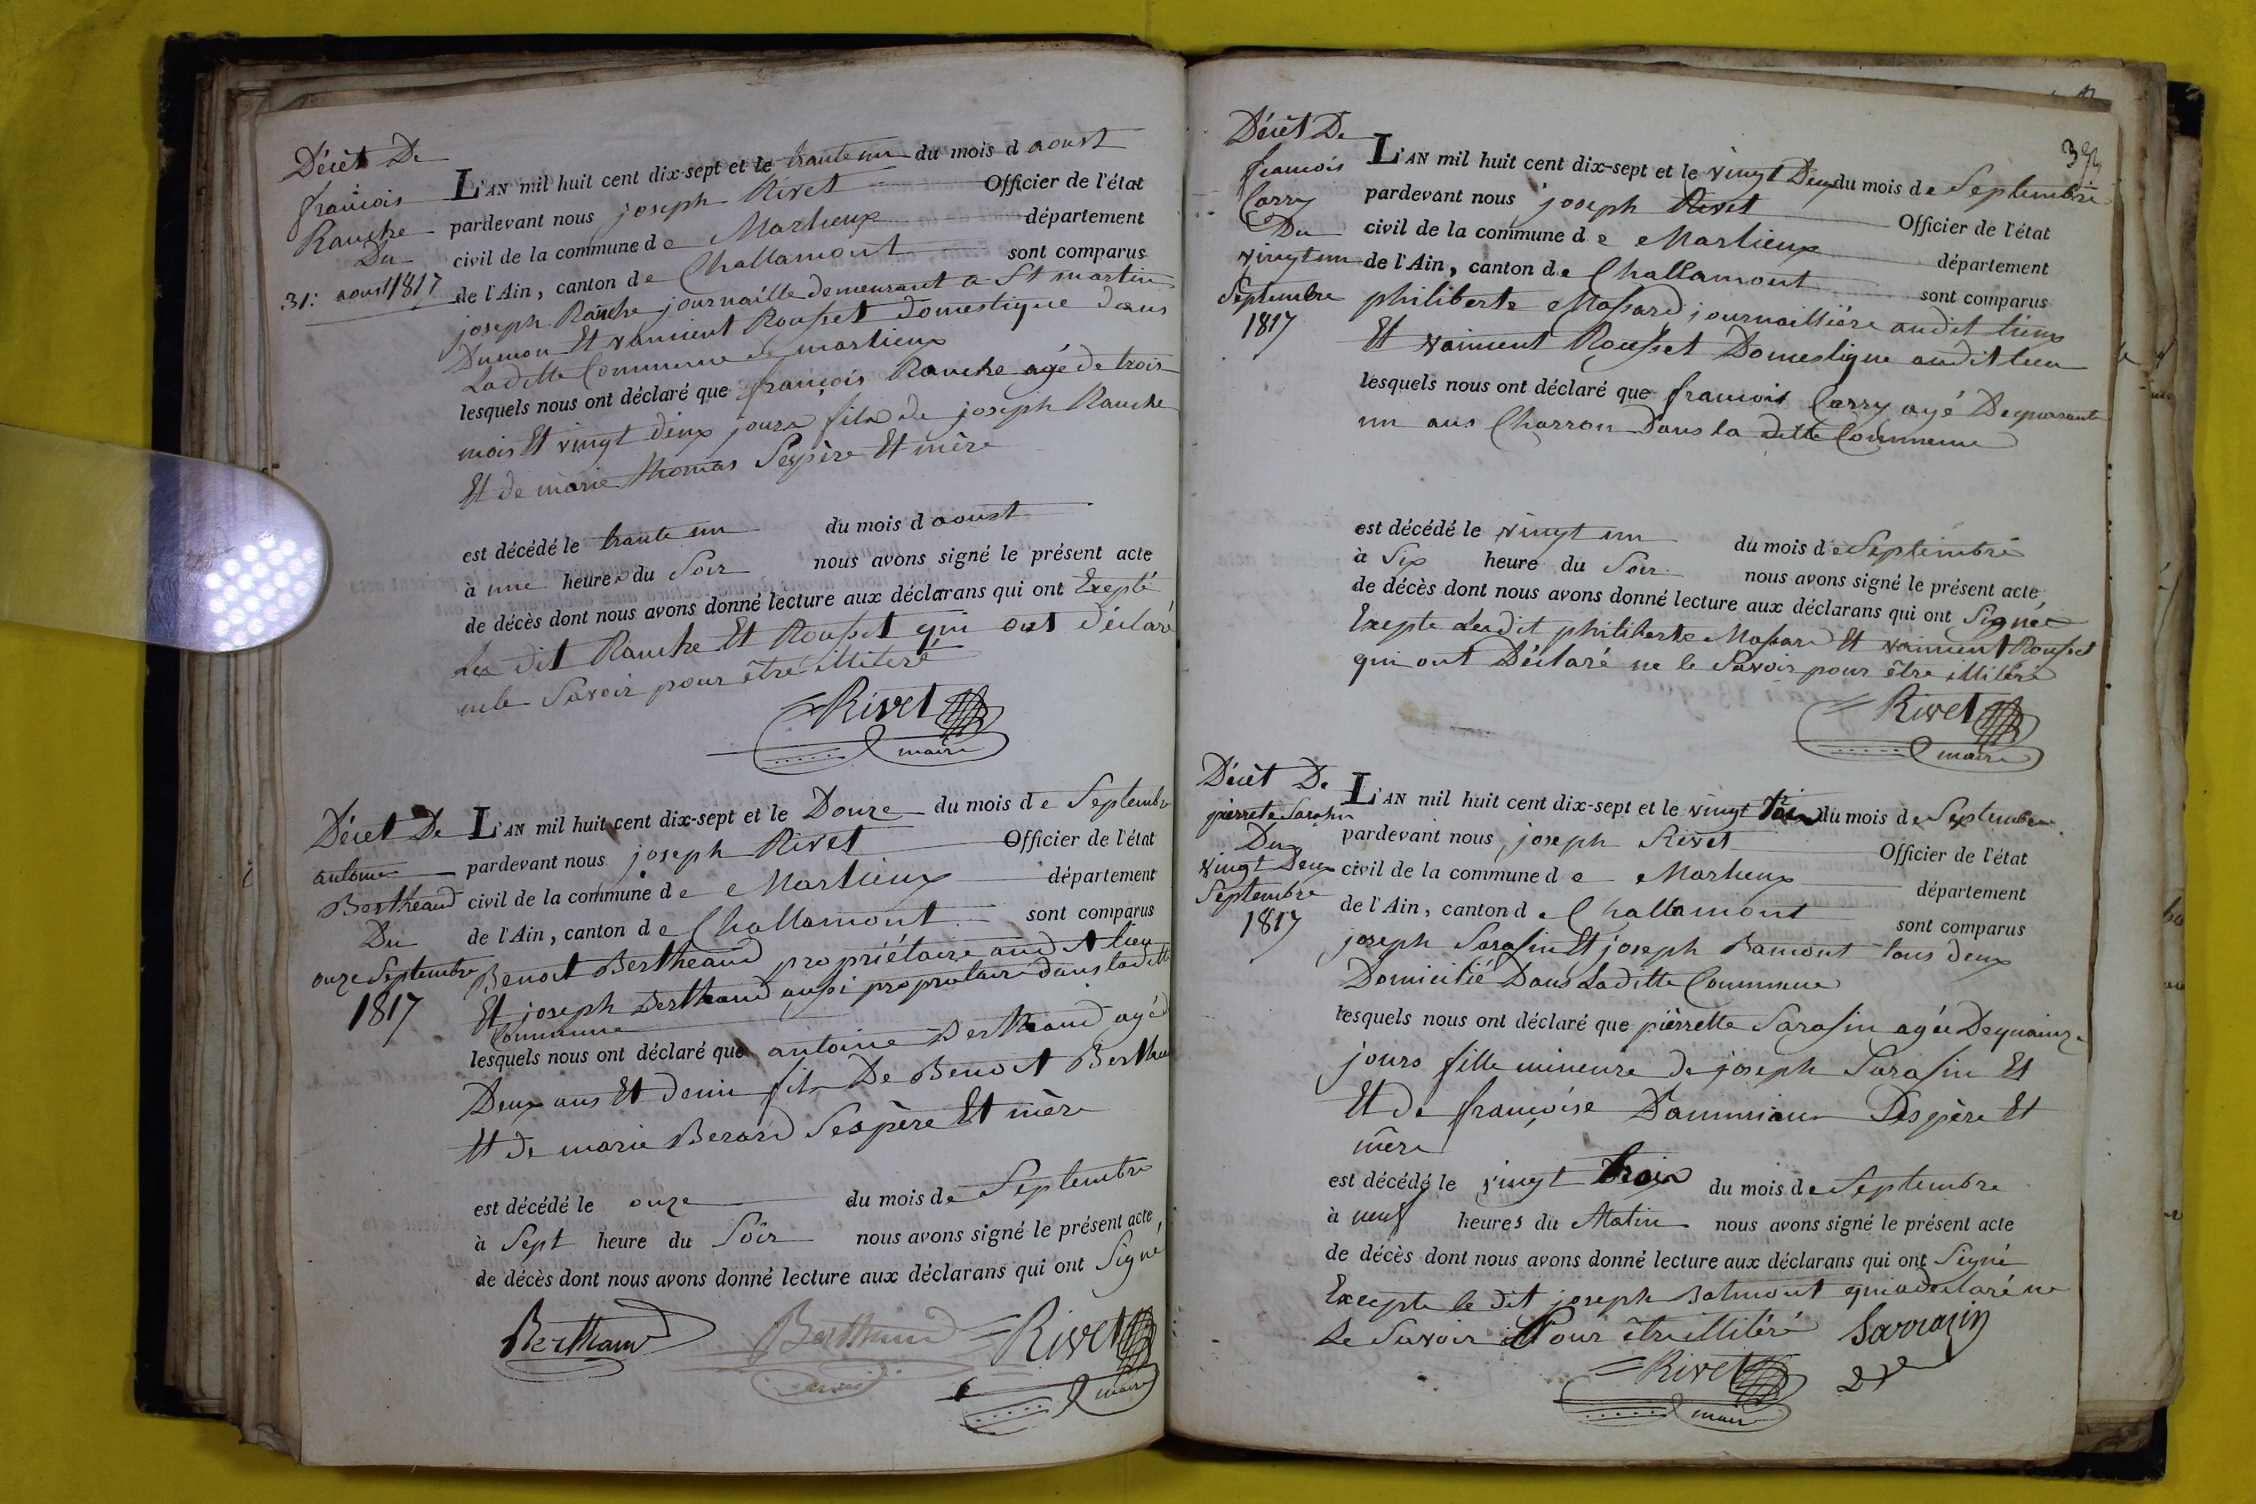 Décèt De
francois
Rauche
Du
31: aoust 1817
L'AN mil huit cent dix-sept et le trante un du mois d aoust
pardevant nous joseph Rivet Officier de l'état
civil de la commune d e Marlieux département
de l'Ain, canton d e Challamont sont comparus
joseph Rauche journaille demeurant a St martin
Et vancient Rousset domestique dans
Laditte Commune de marlieux
lesquels nous ont déclaré que françois Rauche agé de trois
mois Et vingt deux jours fils de joseph Rauche
Et de marie thomas Ses père Et mère
est décédé le trante un du mois d aoust
à une heures du Soir nous avons signé le présent acte
de décès dont nous avons donné lecture aux déclarans qui ont Exepté
Les dit Rauche Et Rousset qui ont déclaré
ne le Savoir pour être illiteré
Rivet
maire
Décet De
antoine
Bertheaud
Du
onze Septembre
1817
L'AN mil huit cent dix-sept et le Douze du mois d e Septembre
pardevant nous joseph Rivet Officier de l'état
civil de la commune d e Marlieux département
de l'Ain, canton d e Challamont sont comparus
Benoit Bertheaud propriétaire audit lieu
Et joseph Bertheaud aussi proprotaire dans laditte
Commune
lesquels nous ont déclaré que antoine Bertheaud agé d
Deux ans Et demi fils De Benoit Bertheau
Et de marie Berard Ses père Et mère
est décédé le onze du mois d e Septembre
à Sept heure du Soir nous avons signé le présent acte
de décès dont nous avons donné lecture aux déclarans qui ont Signé
Bertheaud Bertheaud Rivet
maire
Décèt De
francois
Carry
Du
vingt un
Septembre
1817
L'AN mil huit cent dix-sept et le vingt Deux du mois d e Septembre
pardevant nous joseph Rivet Officier de l'état
civil de la commune d e Marlieux département
de l'Ain, canton d e Challamont sont comparus
philiberte Massard journaillière audit lieux
Et vainient Rousset Domestique audit lieu
lesquels nous ont déclaré que francois Carry agé De quarante
un ans Charron Dans la ditte Commune
est décédé le vingt un du mois d e Septembre
à Six heure du Soir nous avons signé le présent acte
de décès dont nous avons donné lecture aux déclarans qui ont Signée
Exepte Lesdit philiberte Massard Et vainient Rousset
qui ont Déclaré ne le Savoir pour être illiteré
Rivet
maire
Décèt De
pierrete Sarasin
Du
vingt Deux
Septembre
1817
L'AN mil huit cent dix-sept et le vingt trois du mois d e Septembre
pardevant nous joseph Rivet Officier de l'état
civil de la commune d e Marlieux département
de l'Ain, canton d e Challamont sont comparus
joseph Sarasin Et joseph Bamont tous deux
Domicilié Dans Laditte Commune
lesquels nous ont déclaré que pièrrette Sarasin agée De quainze
jours fille mineure de joseph Sarasin Et
Et de françoise Ses père Et
mère
est décédé le vingt trois du mois d e Septembre
à neuf heures du Matin nous avons signé le présent acte
de décès dont nous avons donné lecture aux déclarans qui ont Signé
Excepte le dit joseph Balmont qui a declaré ne
Le Savoir Pour être illitéré Sarrazin
Rivet
maire